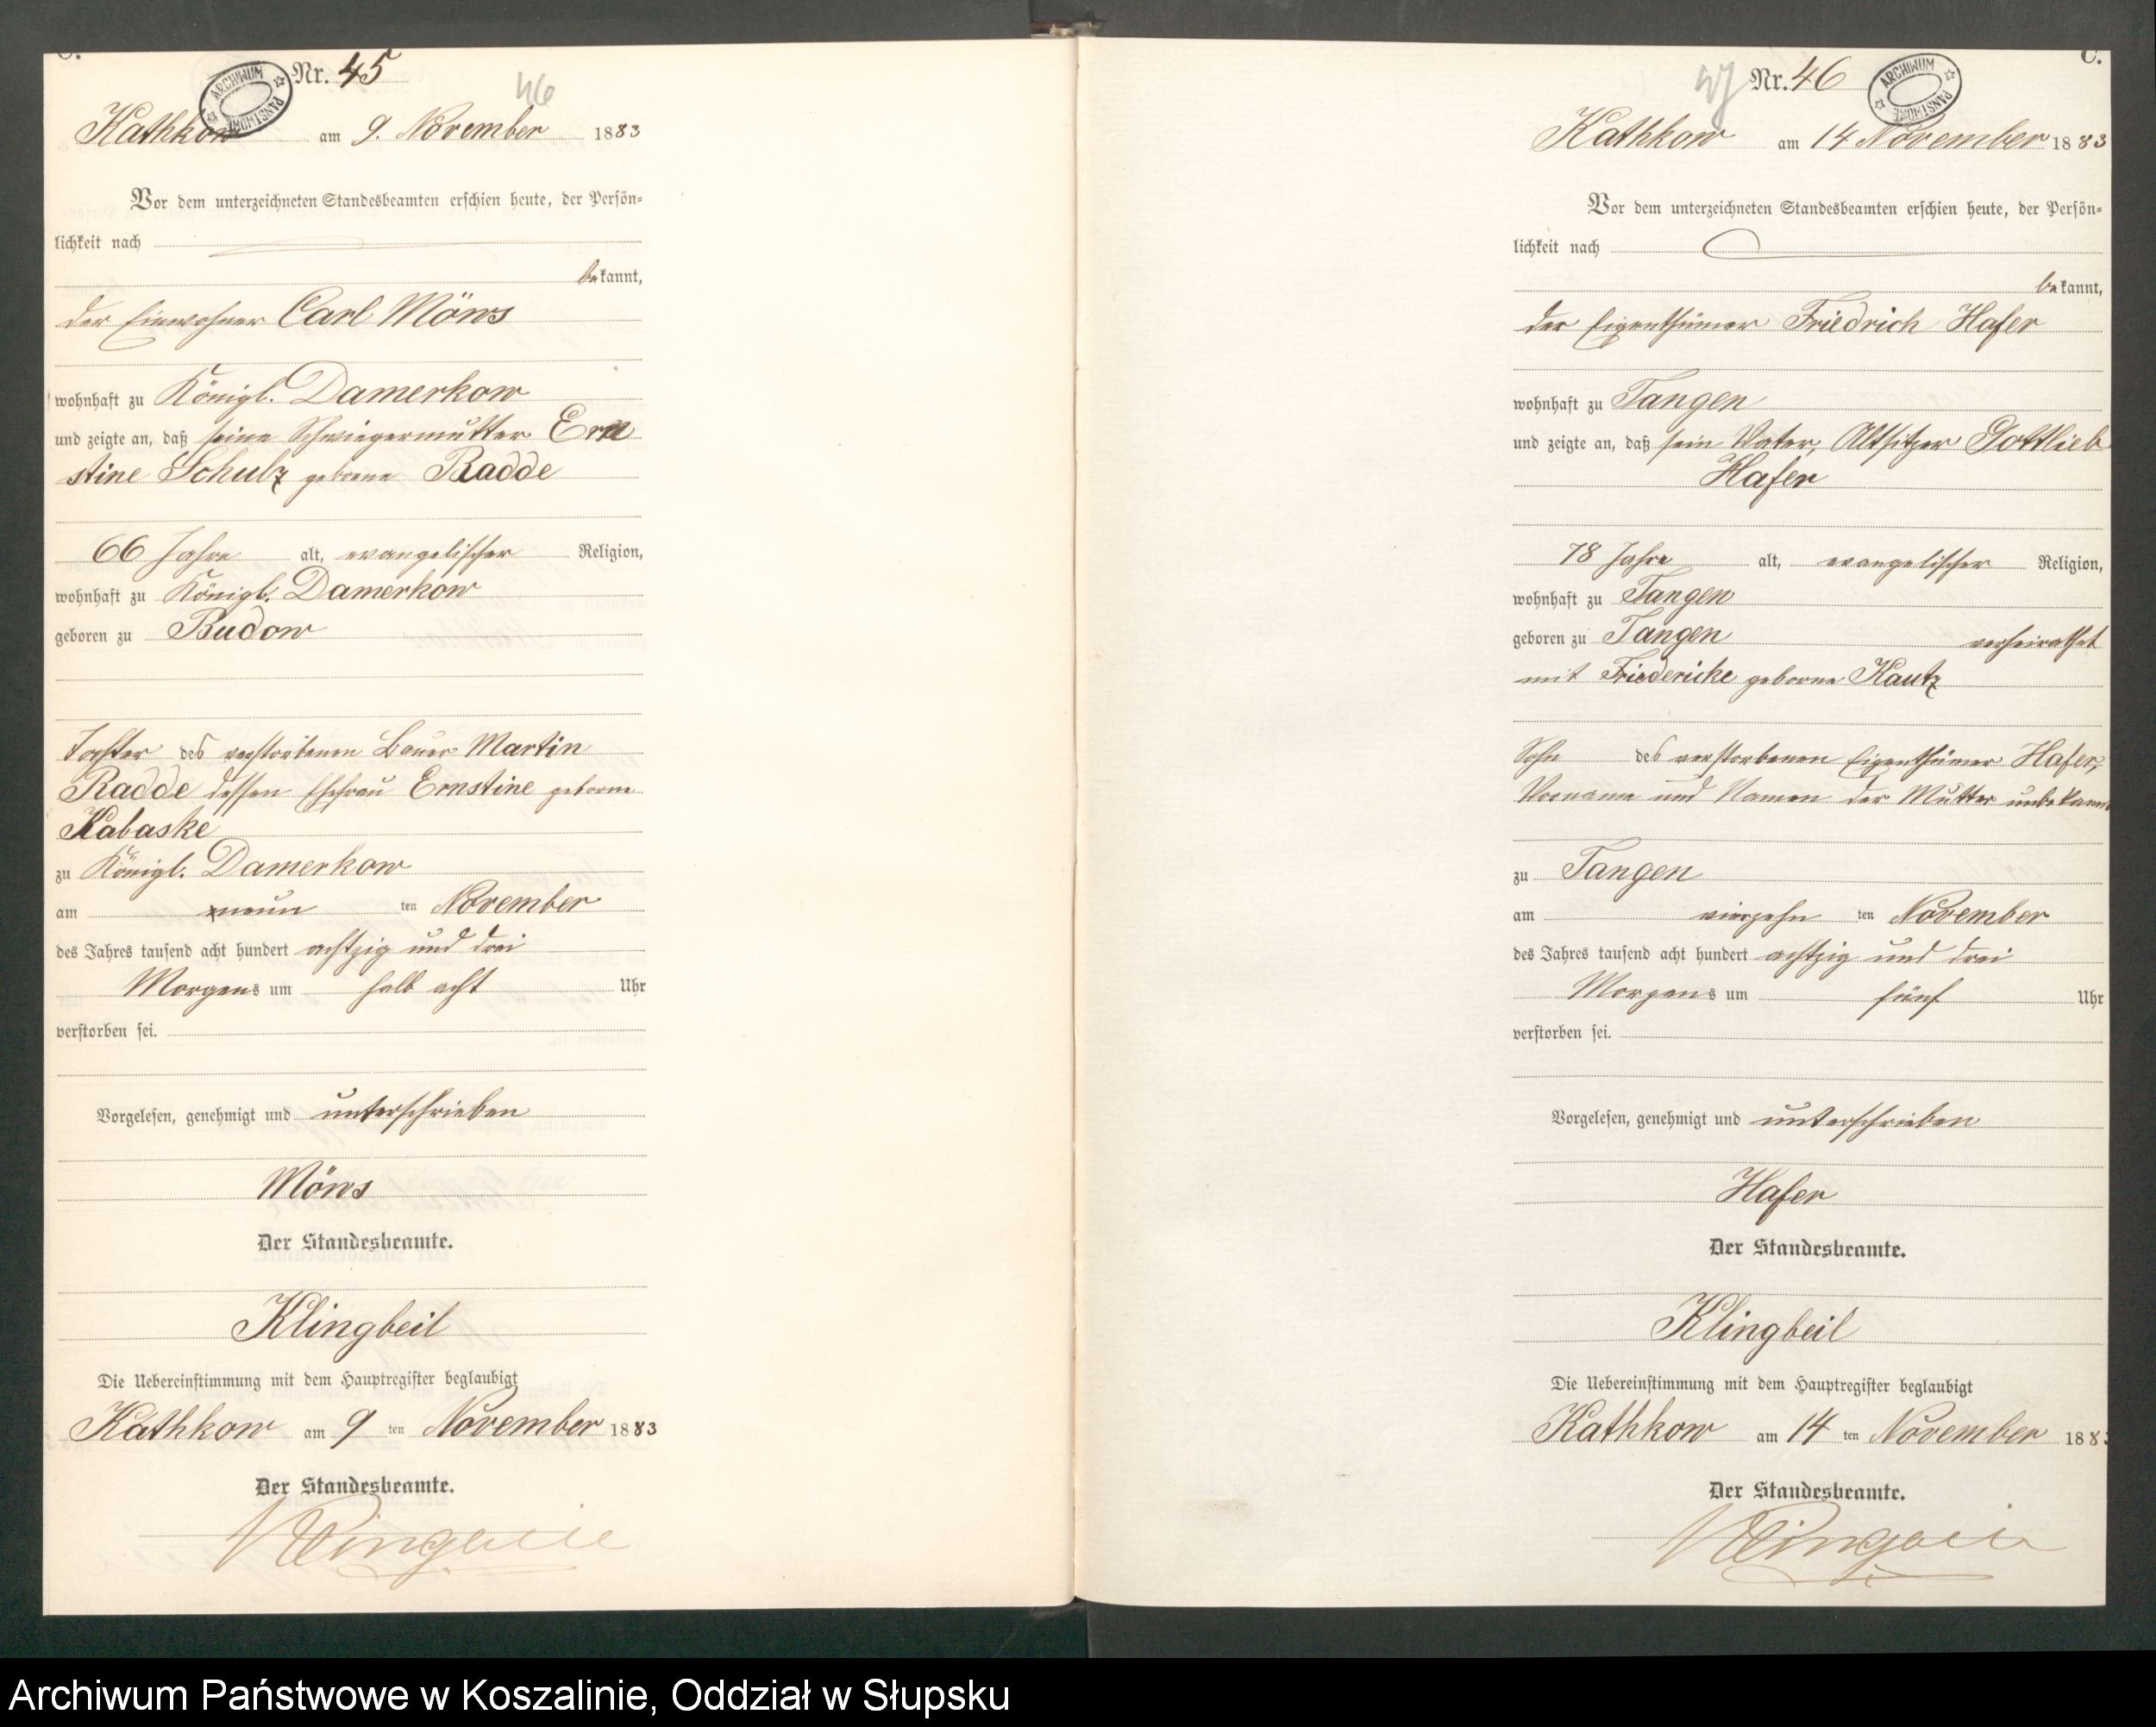 C.
Nr. 45
ARCHIWUM PAŃSTWOWE
46
Kathkow am 9. November 1883
Vor dem unterzeichneten Standesbeamten erschien heute, der Persön-
lichkeit nach
bekannt,
der Einwohner Carl Möws
wohnhaft zu Königl. Damerkow
und zeigte an, daß seine Schwiegermutter Ern
stine Schulz geborne Radde
66 Jahre alt, evangelischer Religion,
wohnhaft zu Königl. Damerkow
geboren zu Budow
Tochter des verstorbenen Bauer Martin
Radde dessen Ehefrau Ernstine geborne
Kabaske
zu Königl. Damerkow
am neun ten November
des Jahres tausend acht hundert achtzig und drei
Morgens um halb acht Uhr
verstorben sei.
Vorgelesen, genehmigt und unterschrieben
Möws
Der Standesbeamte.
Klingbeil
Die Uebereinstimmung mit dem Hauptregister beglaubigt
Kathkow am 9 ten November 1883
Der Standesbeamte.
C.
Nr. 46
ARCHIWUM PAŃSTWOWE
Kathkow am 14 November 1883
Vor dem unterzeichneten Standesbeamten erschien heute, der Persön-
lichkeit nach
bekannt,
der Eigenthümer Friedrich Hafer
wohnhaft zu Tangen
und zeigte an, daß sein Vater, Altsitzer Gottlieb
Hafer
78 Jahre alt, evangelischer Religion,
wohnhaft zu Tangen
geboren zu Tangen verheirathet
mit Friedericke geborne Kautz
Sohn des verstorbenen Eigenthümer Hafer,
Vorname und Namen der Mutter unbekannt
zu Tangen
am vierzehn ten November
des Jahres tausend acht hundert achtzig und drei
Morgens um fünf Uhr
verstorben sei.
Vorgelesen, genehmigt und unterschrieben
Hafer
Der Standesbeamte.
Klingbeil
Die Uebereinstimmung mit dem Hauptregister beglaubigt
Kathkow am 14 ten November 1883
Der Standesbeamte.
Archiwum Państwowe w Koszalinie, Oddział w Słupsku